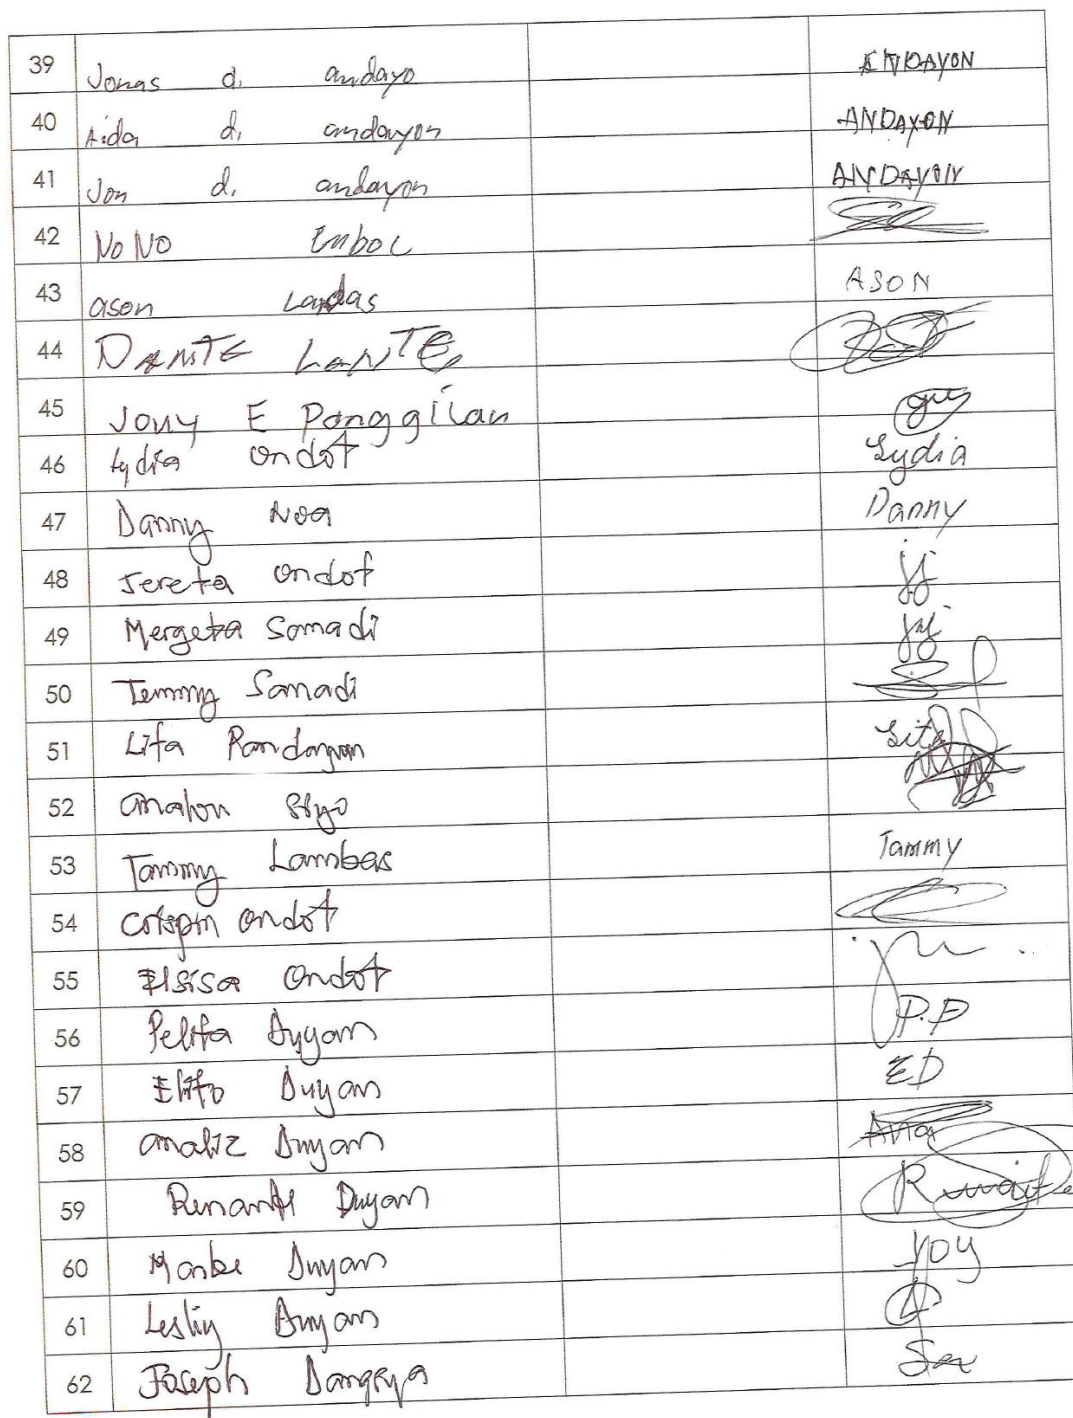 39 Jonas d. andayo ANDAYON
40 Aida d. andayon ANDAYON
41 Jon d. andayon ANDAYON
42 NoNo Enboc
43 ason Landas ASON
44 DANTE LANTE
45 Jony E Panggilan
46 Lydia ondot Lydia
47 Danny Noa Danny
48 Jereta ondot jj
49 Mergeta Somadi
50 Temmy Samadi
51 Lita Randayan Lita
52 analon
53 Tammy Lambas Tammy
54 Crispin ondot
55 Elsisa ondot
56 Pelita Duyan P.D
57 Elito Duyan ED
58 analiz Duyan Ana
59 Renante Duyan
60 Marbe Duyan yoy
61 Lesliy Duyan
62 Joseph